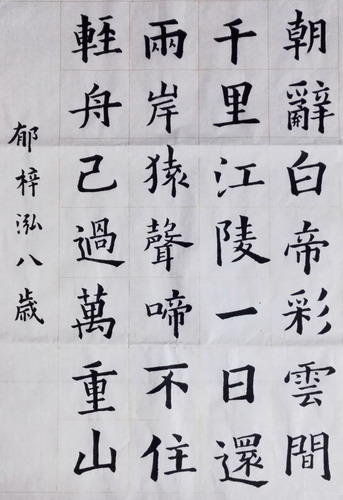 朝辭白帝彩雲間
千里江陵一日還
兩岸猿聲啼不住
輕舟已過萬重山
郁梓泓八歲